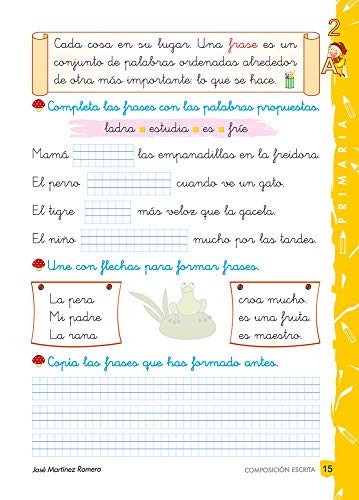 Cada cosa en su lugar. Una frase es un
conjunto de palabras ordenadas alrededor
de otra más importante: lo que se hace.
2
A
PRIMARIA
Completa las frases con las palabras propuestas.
ladra estudia es fríe
Mamá las empanadillas en la freidora.
El perro cuando ve un gato.
El tigre más veloz que la gacela.
El niño mucho por las tardes.
Une con flechas para formar frases.
La pera croa mucho.
Mi padre es una fruta.
La rana es maestro.
Copia las frases que has formado antes.
José Martínez Romero
COMPOSICIÓN ESCRITA 15